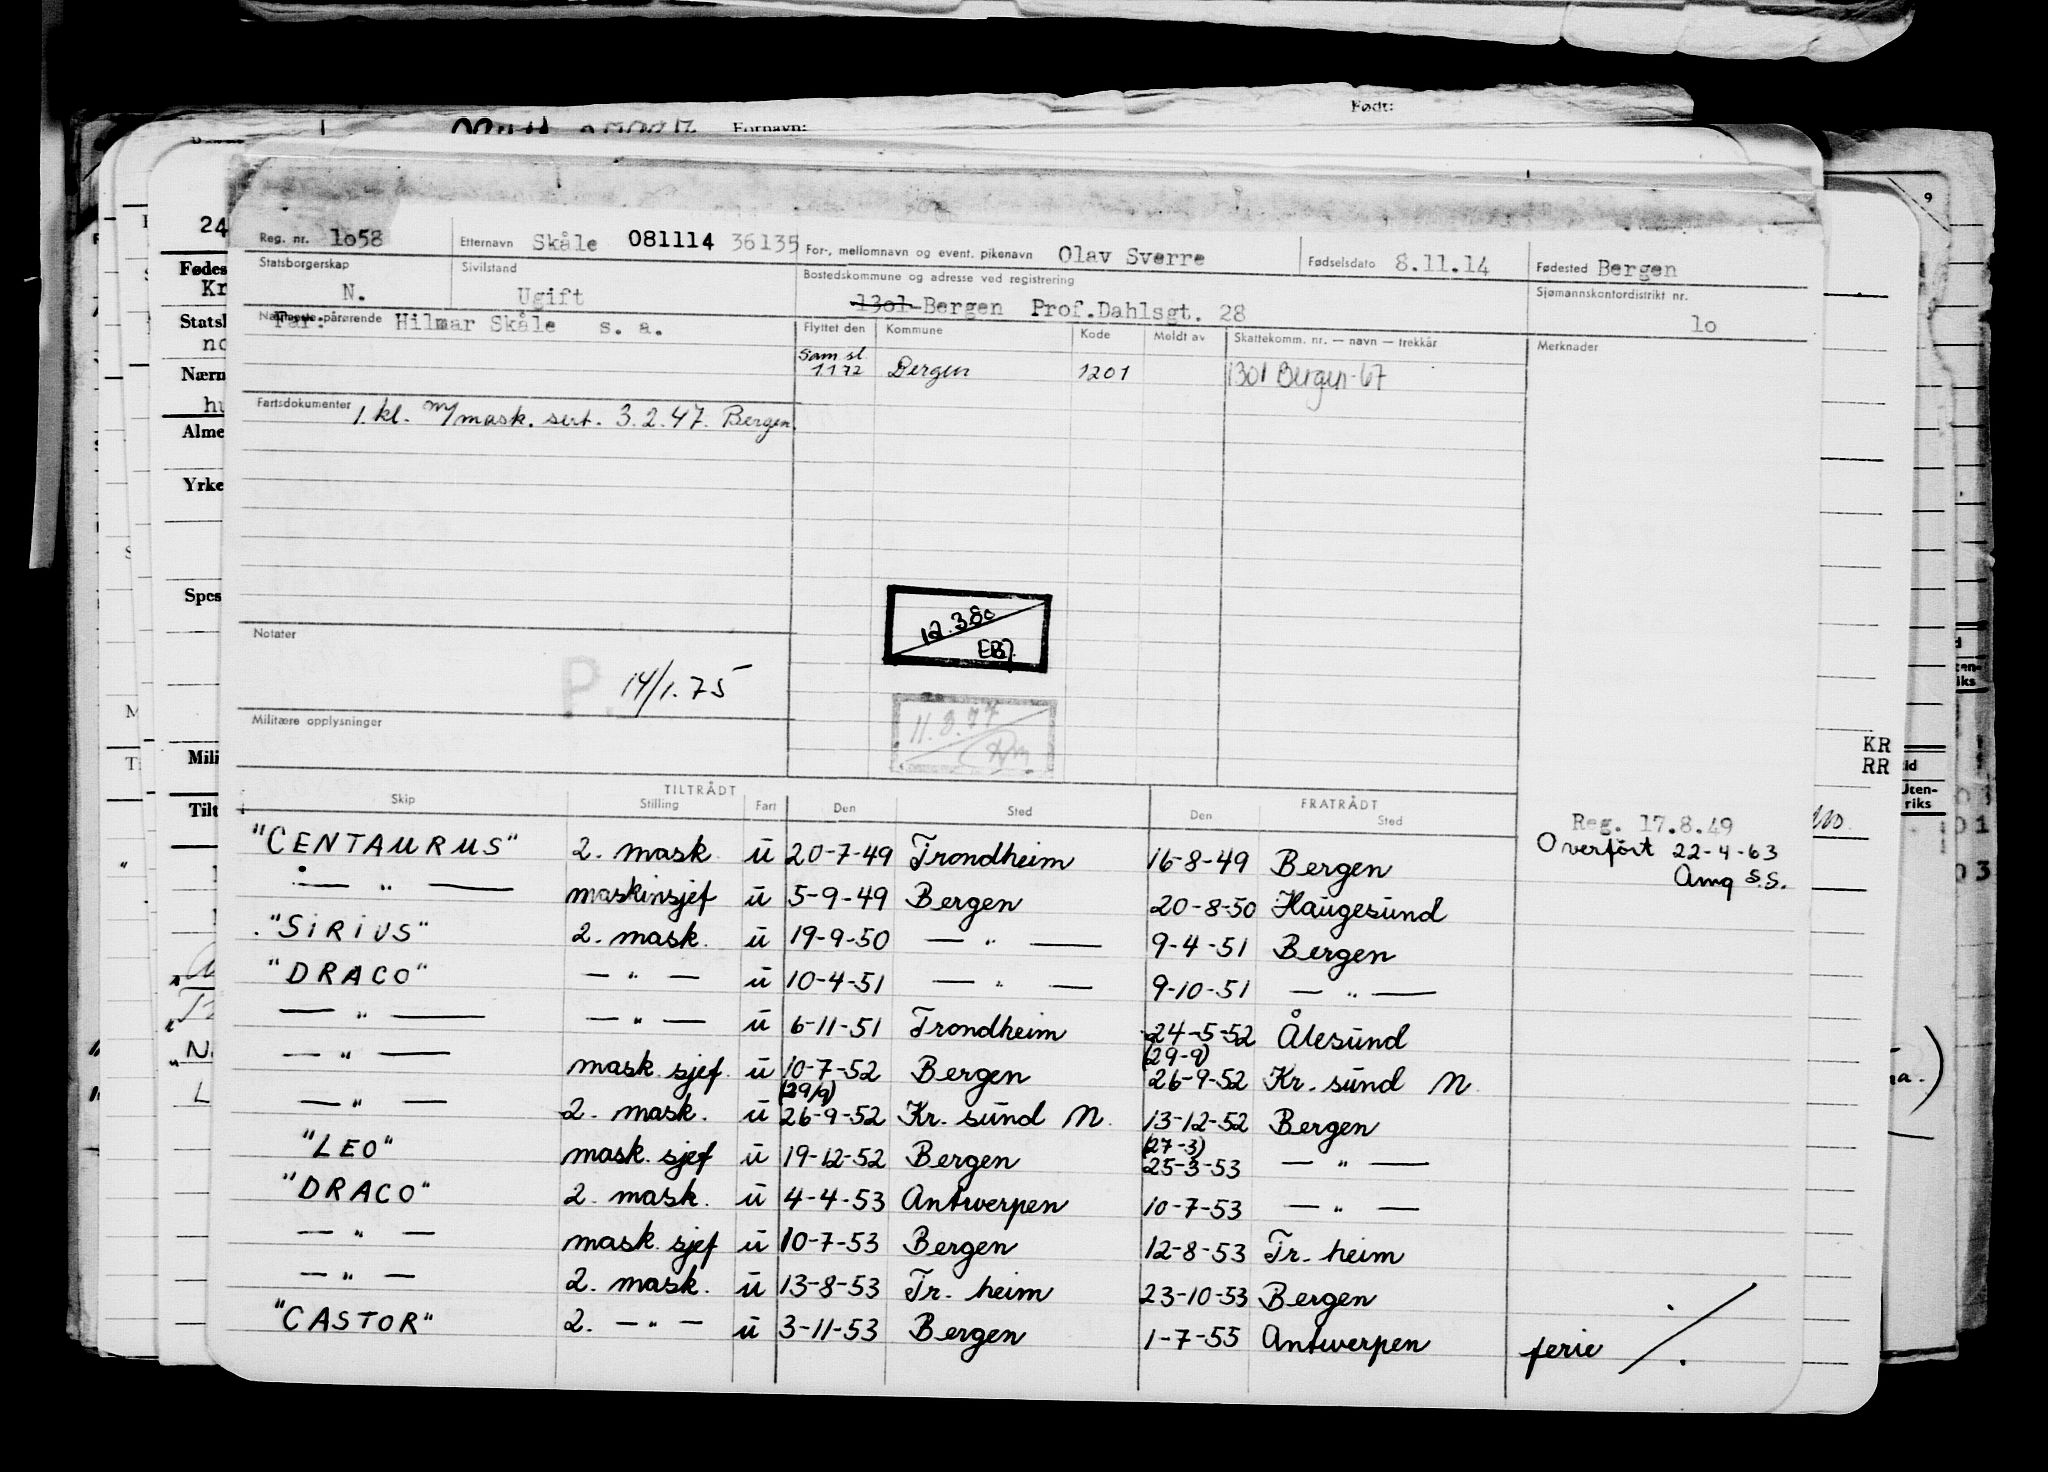 Født:
Fornavn:
9
24
Reg. nr. 1o58 Etternavn Skåle 081114 36135 For-, mellomnavn og event. pikenavn Olav Sverre Fødselsdato 8.11.14 Fødested Bergen
Statsborgerskap N. Sivilstand Ugift Bostedskommune og adresse ved registrering Sjømannskontordistrikt nr.
13o1 Bergen Prof.Dahlsgt. 28 1o
Nærmeste pårørende Far: Hilmar Skåle s. a. Flyttet den Kommune Kode Meldt av Skattekomm. nr. — navn — trekkår Merknader
Sam sl.
1172 Bergen 1201 1301 Bergen-67
Fartsdokumenter 1. kl. m/mask. sert. 3.2.47. Bergen.
12.3.80
EBJ
Notater
P. 14/1.75
Militære opplysninger
Fødes
Kr
Stats
no
Nærn
hu
Alme
Yrke
Spes
Mili
Tilt
KR
RR
TILTRÅDT FRATRÅDT
Skip Stilling Fart Den Sted Den Sted
Reg. 17.8.49
Overført 22-4-63
Amq S.S.
"CENTAURUS" 2. mask. ū 20-7-49 Trondheim 16-8-49 Bergen
— " — maskinsjef ū 5-9-49 Bergen 20-8-50 Haugesund
"SIRIUS" 2. mask. ū 19-9-50 — " — 9-4-51 Bergen
"DRACO" — " — ū 10-4-51 — " — 9-10-51 — " —
— " — — " — ū 6-11-51 Trondheim 24-5-52 Ålesund
— " — mask. sjef. ū 10-7-52 Bergen (29-9) 26-9-52 Kr. sund N
— " — 2. mask. ū (29/9) 26-9-52 Kr. sund N. 13-12-52 Bergen
"LEO" mask. sjef ū 19-12-52 Bergen (27-3) 25-3-53 — " —
"DRACO" 2. mask. ū 4-4-53 Antwerpen 10-7-53 — " —
— " — mask. sjef ū 10-7-53 Bergen 12-8-53 Tr. heim
— " — 2. mask. ū 13-8-53 Tr. heim 23-10-53 Bergen
"CASTOR" 2. — " — ū 3-11-53 Bergen 1-7-55 Antwerpen ferie ·/.